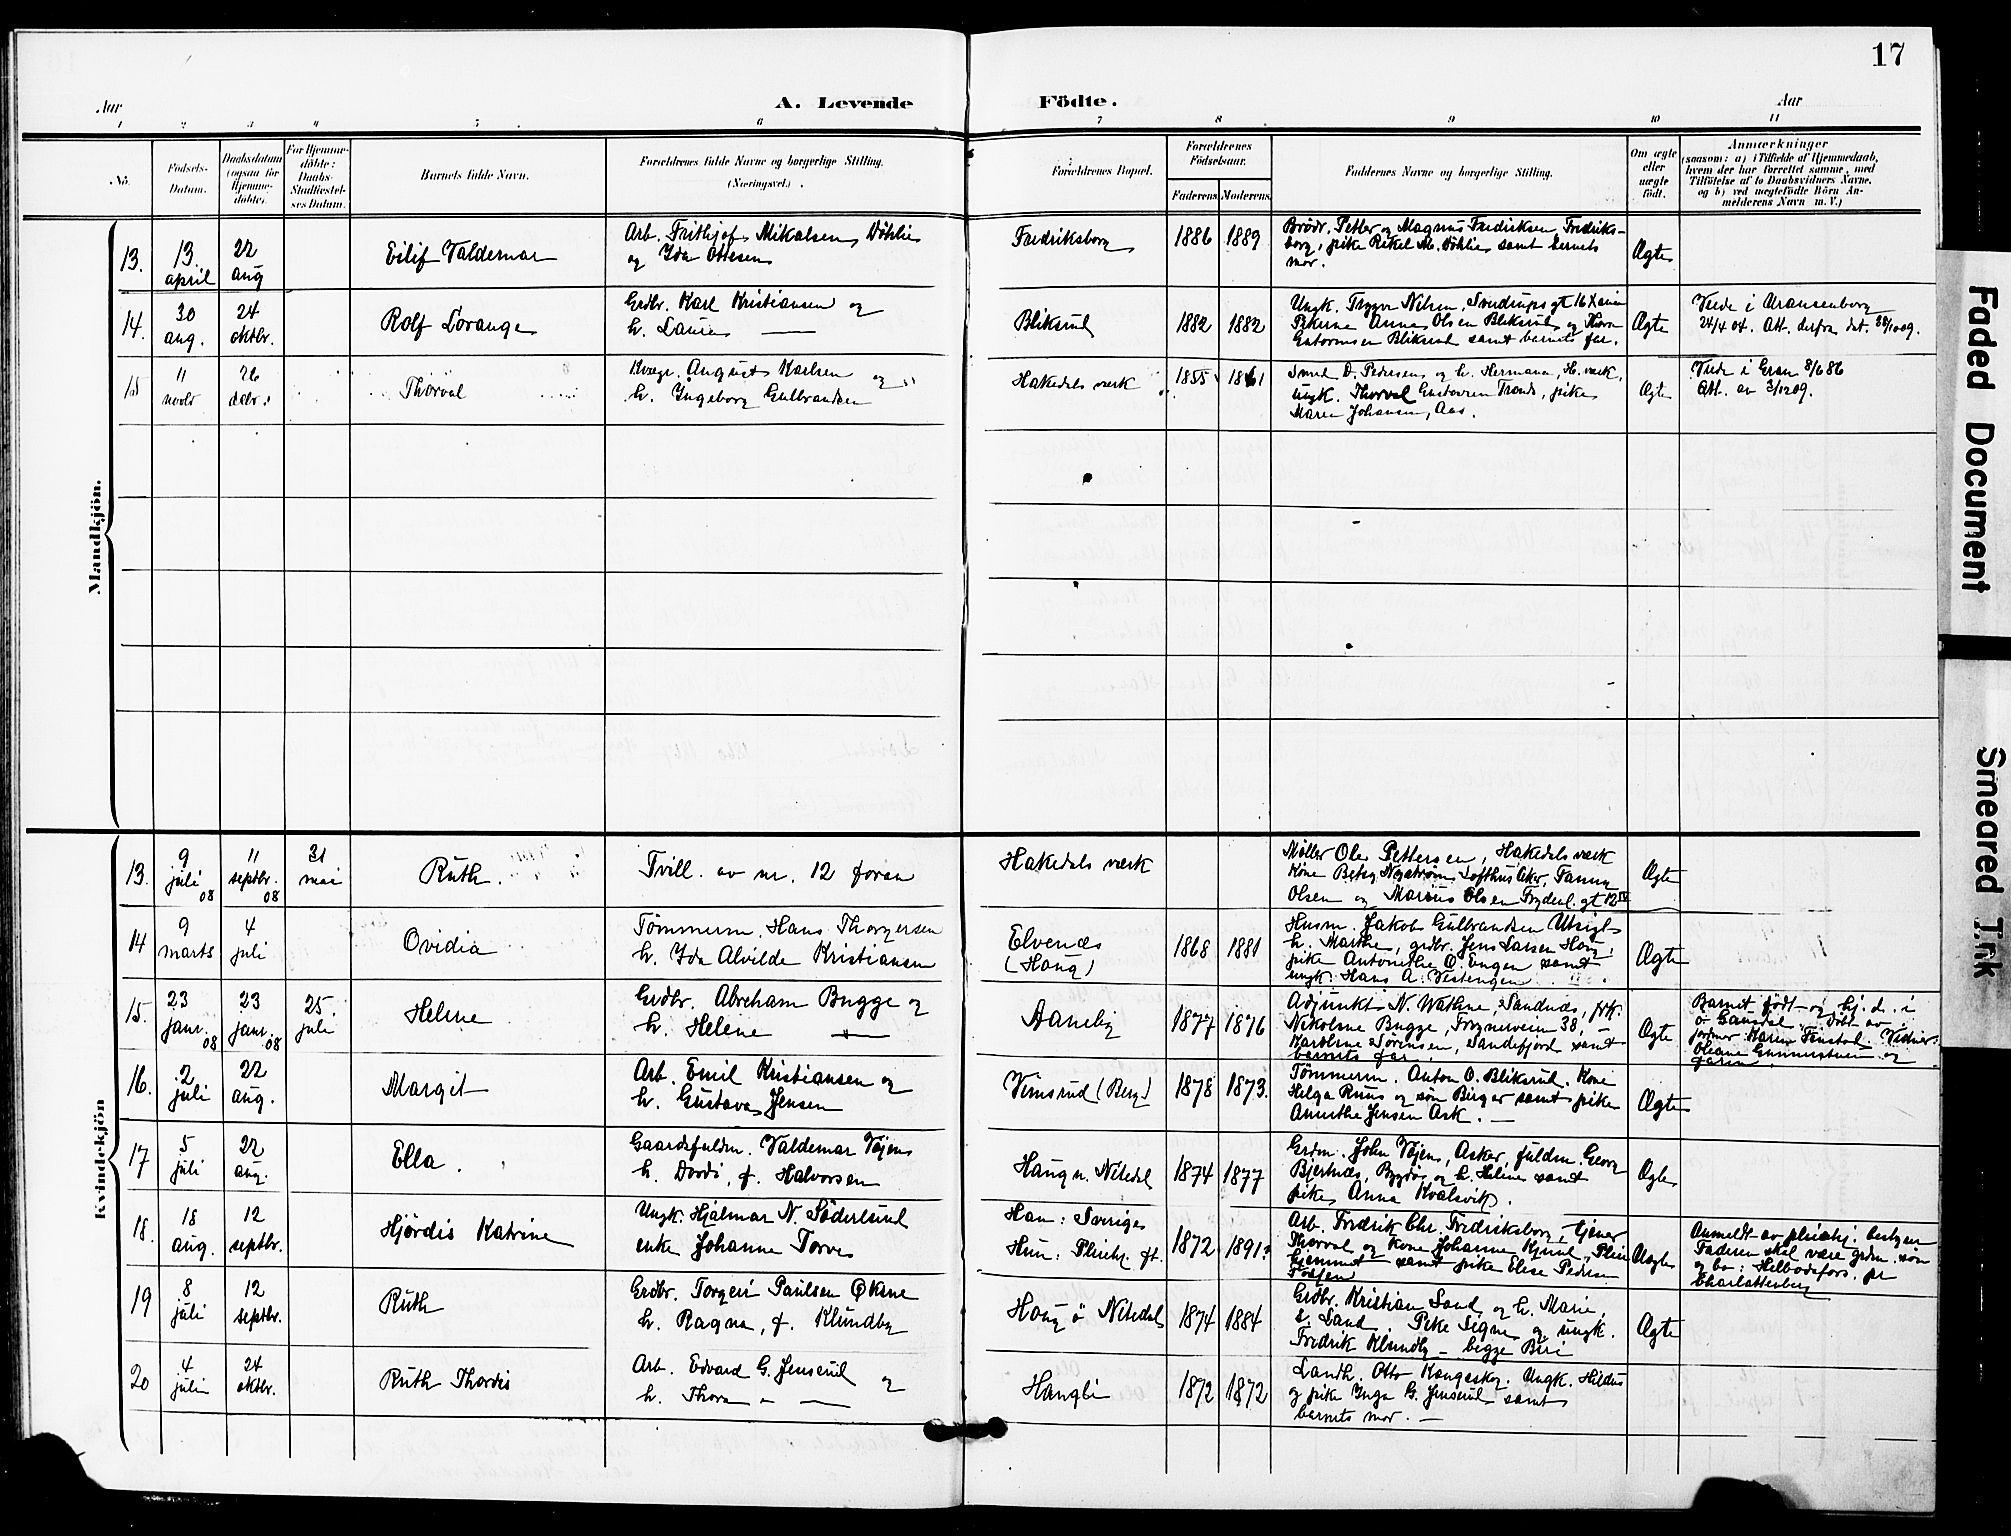 17
Aar
A. Levende
Födte.
Aar
1 2 3 4 5 6 7 8 9 10 11
No.
Födsels-
Datum.
Daabsdatum
(ogsaa for
Hjemme-
döbte).
For Hjemme-
döbte:
Daabs-
Stadfæstel-
ses Datum.
Barnets fulde Navn.
Forældrenes fulde Navne og borgerlige Stilling.
(Næringsvei.)
Forældrenes Bopæl.
Forældrenes
Födselsaar.
Faderens. Moderens.
Faddernes Navne og borgerlige Stilling.
Om ægte
eller
uægte
født.
Anmærkninger
(saasom: a) i Tilfælde af Hjemmedaab,
hvem der har forrettet samme, med
Tilföielse af to Daabsvidners Navne,
og b) ved uægtefödte Börn An-
melderens Navn m. V.)
Mandkjön.
13.
13.
april
22
aug
Eilif Valdemar
Arb. Frithjof Mikalsen Döhlie
og Ida Ottesen
Fredriksborg
1886 1889
Brødr. Petter og Magnus Fredriksen, Fredriks-
borg, pike Rikel M. Döhlie samt barnets
mor.
Ægte
14.
30
aug.
24
oktbr.
Rolf Lorange
Grdbr. Karl Kristiansen og
h. Laura —
Bliksrud
1882 1882
Ungk. Trygve Nilsen,
Pikerne Anna Olsen Bliksrud og
Bliksrud samt barnets far.
Ægte
Viede i Uranienborg
24/4 04. Att. derfra dat.
15
11
novbr
26
debr.
Thorval
August Karlsen og
h. Ingeborg Gulbrandsen
Hakedals værk
1855 1861
Smed D. Pedersen og h. Hermana, H. værk,
ungk. Thorval Gustavsen Trands, pike
Maren Johansen, Aas.
Ægte
Viede i Gran 8/6 86
Att. av 3/12 09.
Kvindekjön
13.
9
juli
08
11
septbr.
08
31
mai
Ruth.
Tvill. av nr. 12 foran
Hakedals værk
Møller Ole Pettersen, Hakedals værk
Kone Betsy Nystrøm Lofthus Aker, Fanny
Olsen og Marius Olsen Frydenl. gt 12
Ægte
14
9
marts
4
juli
Ovidia
Tömmerm. Hans Thorgersen
h. Ida Alvilde Kristiansen
Elvenæs
(Haug)
1868 1881
Husm. Jakob Gulbrandsen Utsigt
h. Marthe, grdbr. Jens Larsen Haug,
pike Antonethe O. Engen samt
ungk. Hans A. Vestengen
Ægte
15.
23
janr.
08
23
janr.
08
25
juli
Helene
Grdbr. Abraham Bugge og
h. Helene —
Aaneby
1877 1876
Adjunkt N. Wathne, Sandnæs, frk.
Nikoline Bugge, Frognerveien 38,
Karoline Sörensen, Sandefjord samt
barnets far.
Ægte
Barnet født og hj. d. i
ö Gausdal. Döbt av
jordmor Karen Vidner:
Oleane Gunnerstuen og
faren.
16.
2
juli
22
aug.
Margit
Arb. Emil Kristiansen og
h. Gustava Jensen
Vimsrud (Berg)
1878 1873.
Tömmerm. Anton O. Bliksrud. Kone
Helga Ruus og søn Birger samt pike
Anethe Jensen Ask. —
Ægte
17
5
juli
22
aug.
Ella.
Gaardsfuldm. Valdemar Vøjen
h. Dordi, f. Halvorsen
Haug n. Nitedal
1874 1877
Grdm. John Vøjen, Asker, fuldm. Georg
Bjertnæs, Bygdø og h. Helene samt
pike Anna Kvalsvik.
Ægte
18.
18
aug.
12
septbr.
Hjördis Katrine
Ungk. Hjalmar N. Söderlund
enke Johanne Torves
Han: Sverige
Hun: Pleiehj. f.
1872 1891?
Arb. Fredrik Chr. Fredriksborg, tjener
Thorval og kone Johanne Pleie
hjemmet samt pike Elise Pedersen
Fossen
Uægte
Anmeldt av pleiehj. bestyrer
Faderen skal være grdm. søn
og bo: Helbodafors pr
Charlottenberg
19
8
juli
12
septbr.
Ruth
Grdbr. Torgeir Paulsen Økerne
h. Ragna, f. Klundby
Haug ö Nitedal
1874 1884
Grdbr. Kristian Sand og h. Marie,
s. Land. Pike Signe og ungk.
Fredrik Klundby — begge Biri
Ægte
20
4
juli
24
oktbr.
Ruth Thordis
Arb. Edvard G. Jensrud og
h. Thora — —
Haugli
1872 1872
Landh. Otto Kongeskog. Ungk. Hildus
og pike Inga G. Jensrud samt
barnets mor. —
Faded Document
Smeared Ink